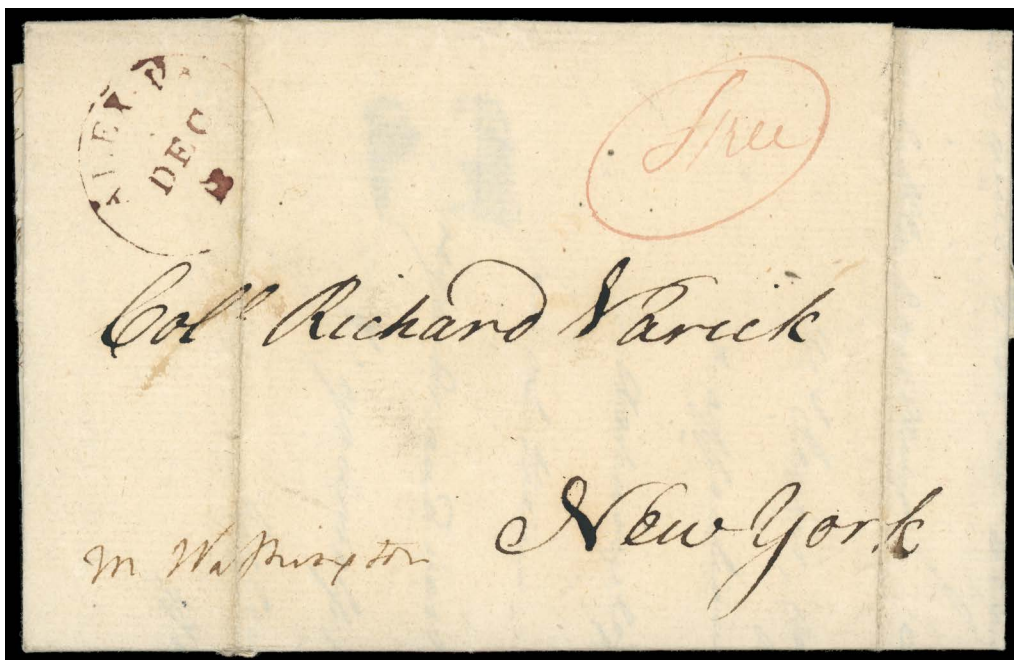 ALEX. D
DEC
Free
Coll. Richard Varick
New York
M Washington